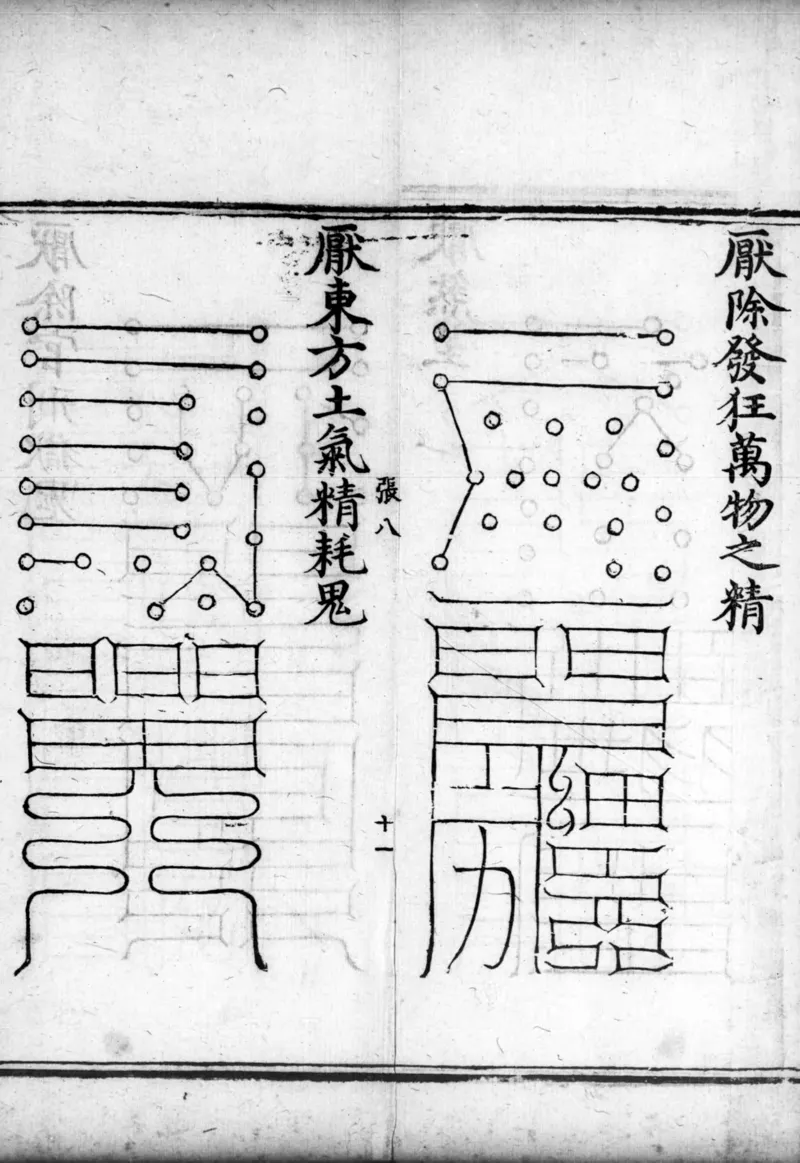 厭除發狂萬物之精
張八
十一
厭東方土氣精耗鬼